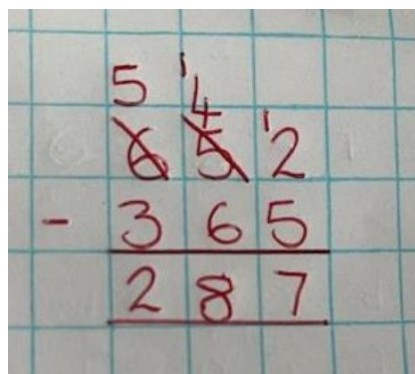 5 14
6 5 12
- 3 6 5
2 8 7